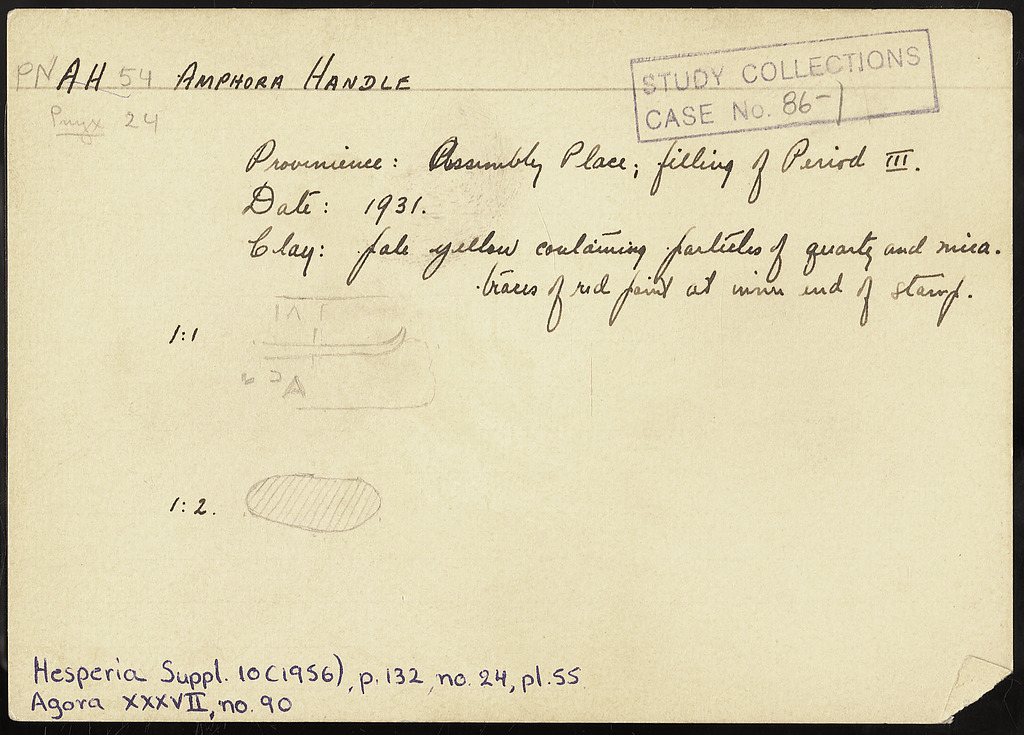 PN AH 54 AMPHORA HANDLE
STUDY COLLECTIONS
CASE No. 86-7
Pnyx 24
Provenience: Assembly Place; filling of Period III.
Date: 1931.
Clay: pale yellow containing particles of quartz and mica.
traces of red paint at inner end of stamp.
1:1
A
1:2.
Hesperia Suppl. 10 (1956), p. 132, no. 24, pl. 55
Agora XXXVII, no. 90